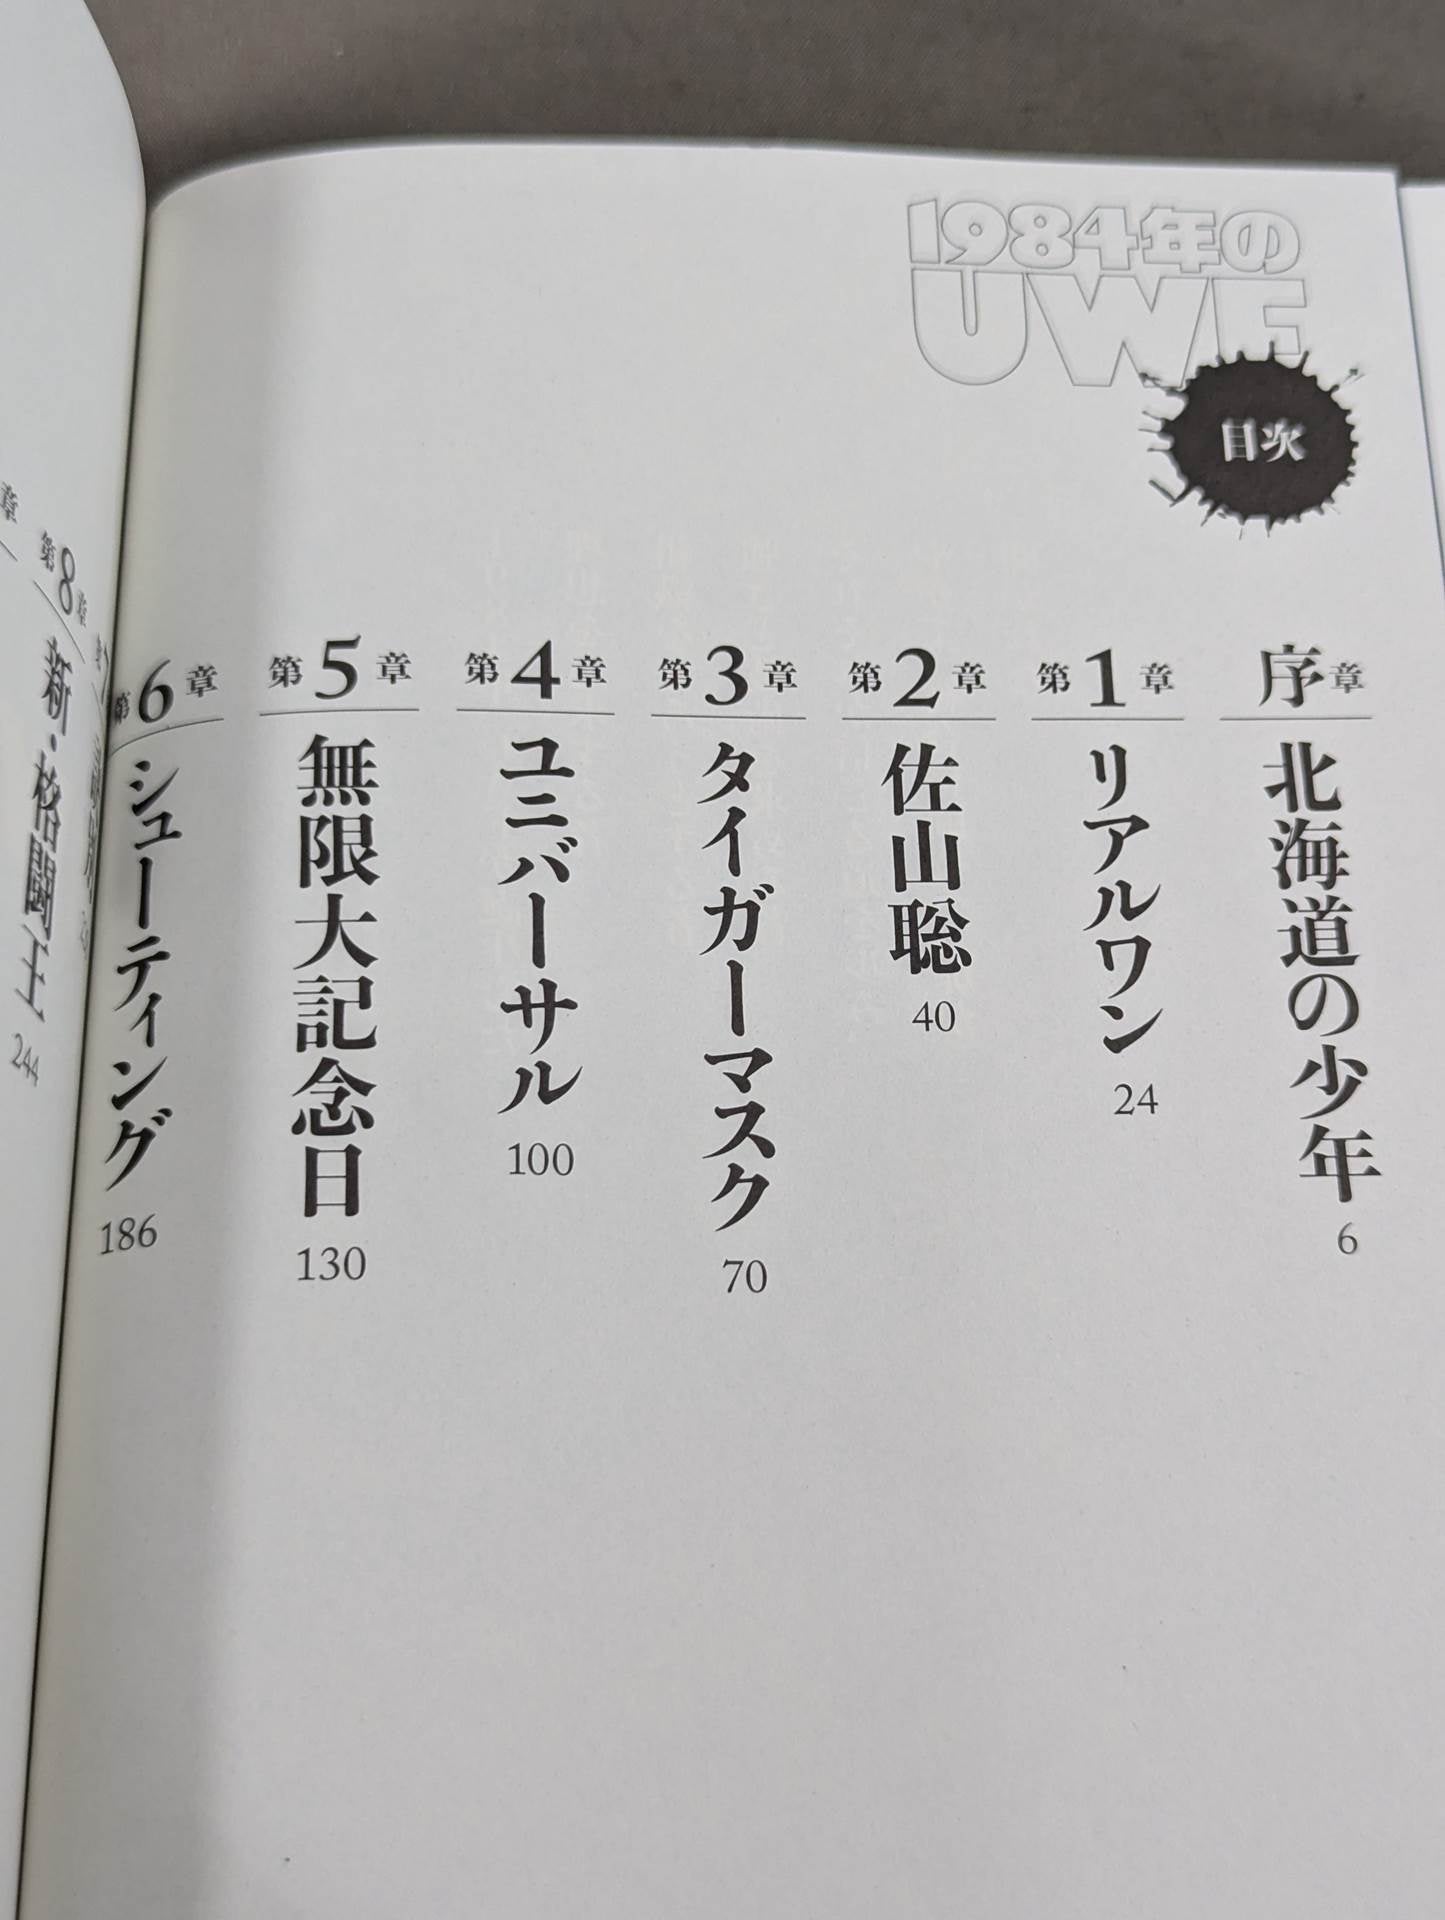 1984年の
UWF
目次
序章
北海道の少年
6
第1章
リアルワン
24
第2章
佐山聡
40
第3章
タイガーマスク
70
第4章
ユニバーサル
100
第5章
無限大記念日
130
第6章
シューティング
186
第8章
新・格闘王
244
章